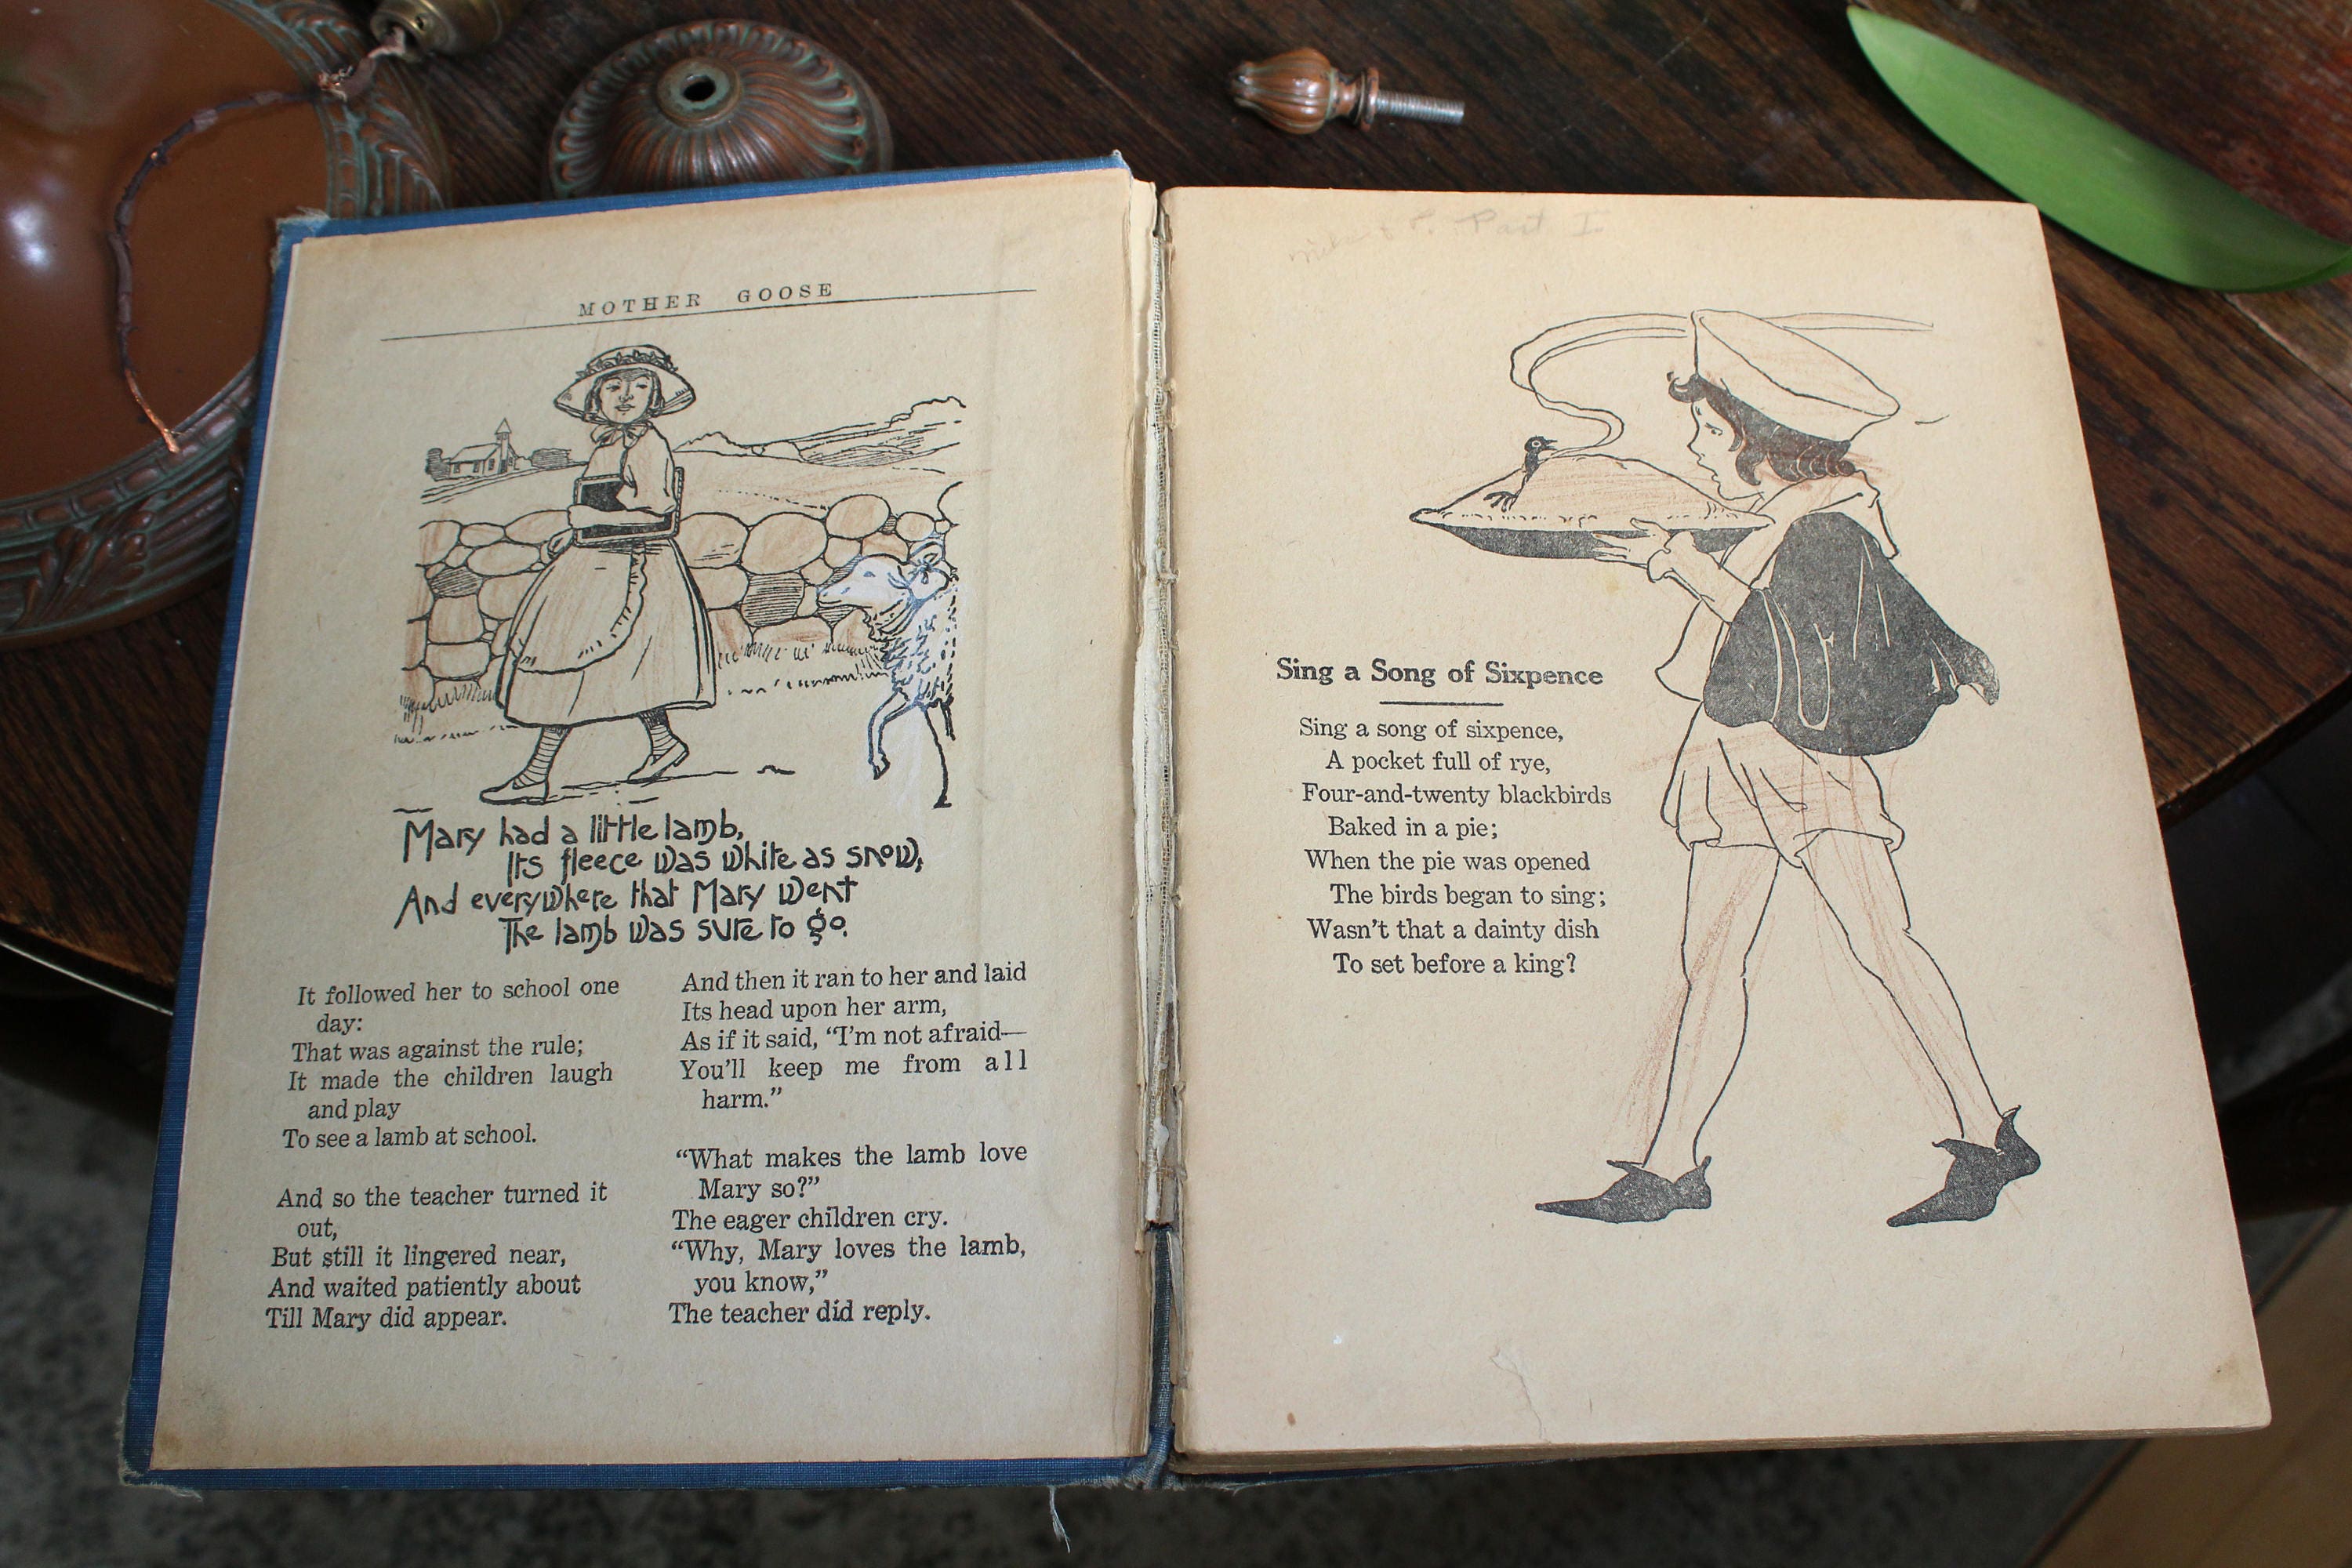 MOTHER GOOSE
Mary had a little lamb,
Its fleece was white as snow,
And everywhere that Mary went
The lamb was sure to go.
It followed her to school one
day:
That was against the rule;
It made the children laugh
and play
To see a lamb at school.
And so the teacher turned it
out,
But still it lingered near,
And waited patiently about
Till Mary did appear.
And then it ran to her and laid
Its head upon her arm,
As if it said, “I'm not afraid—
You'll keep me from all
harm.”
“What makes the lamb love
Mary so?”
The eager children cry.
“Why, Mary loves the lamb,
you know,”
The teacher did reply.
Part I
Sing a Song of Sixpence
Sing a song of sixpence,
A pocket full of rye,
Four-and-twenty blackbirds
Baked in a pie;
When the pie was opened
The birds began to sing;
Wasn't that a dainty dish
To set before a king?